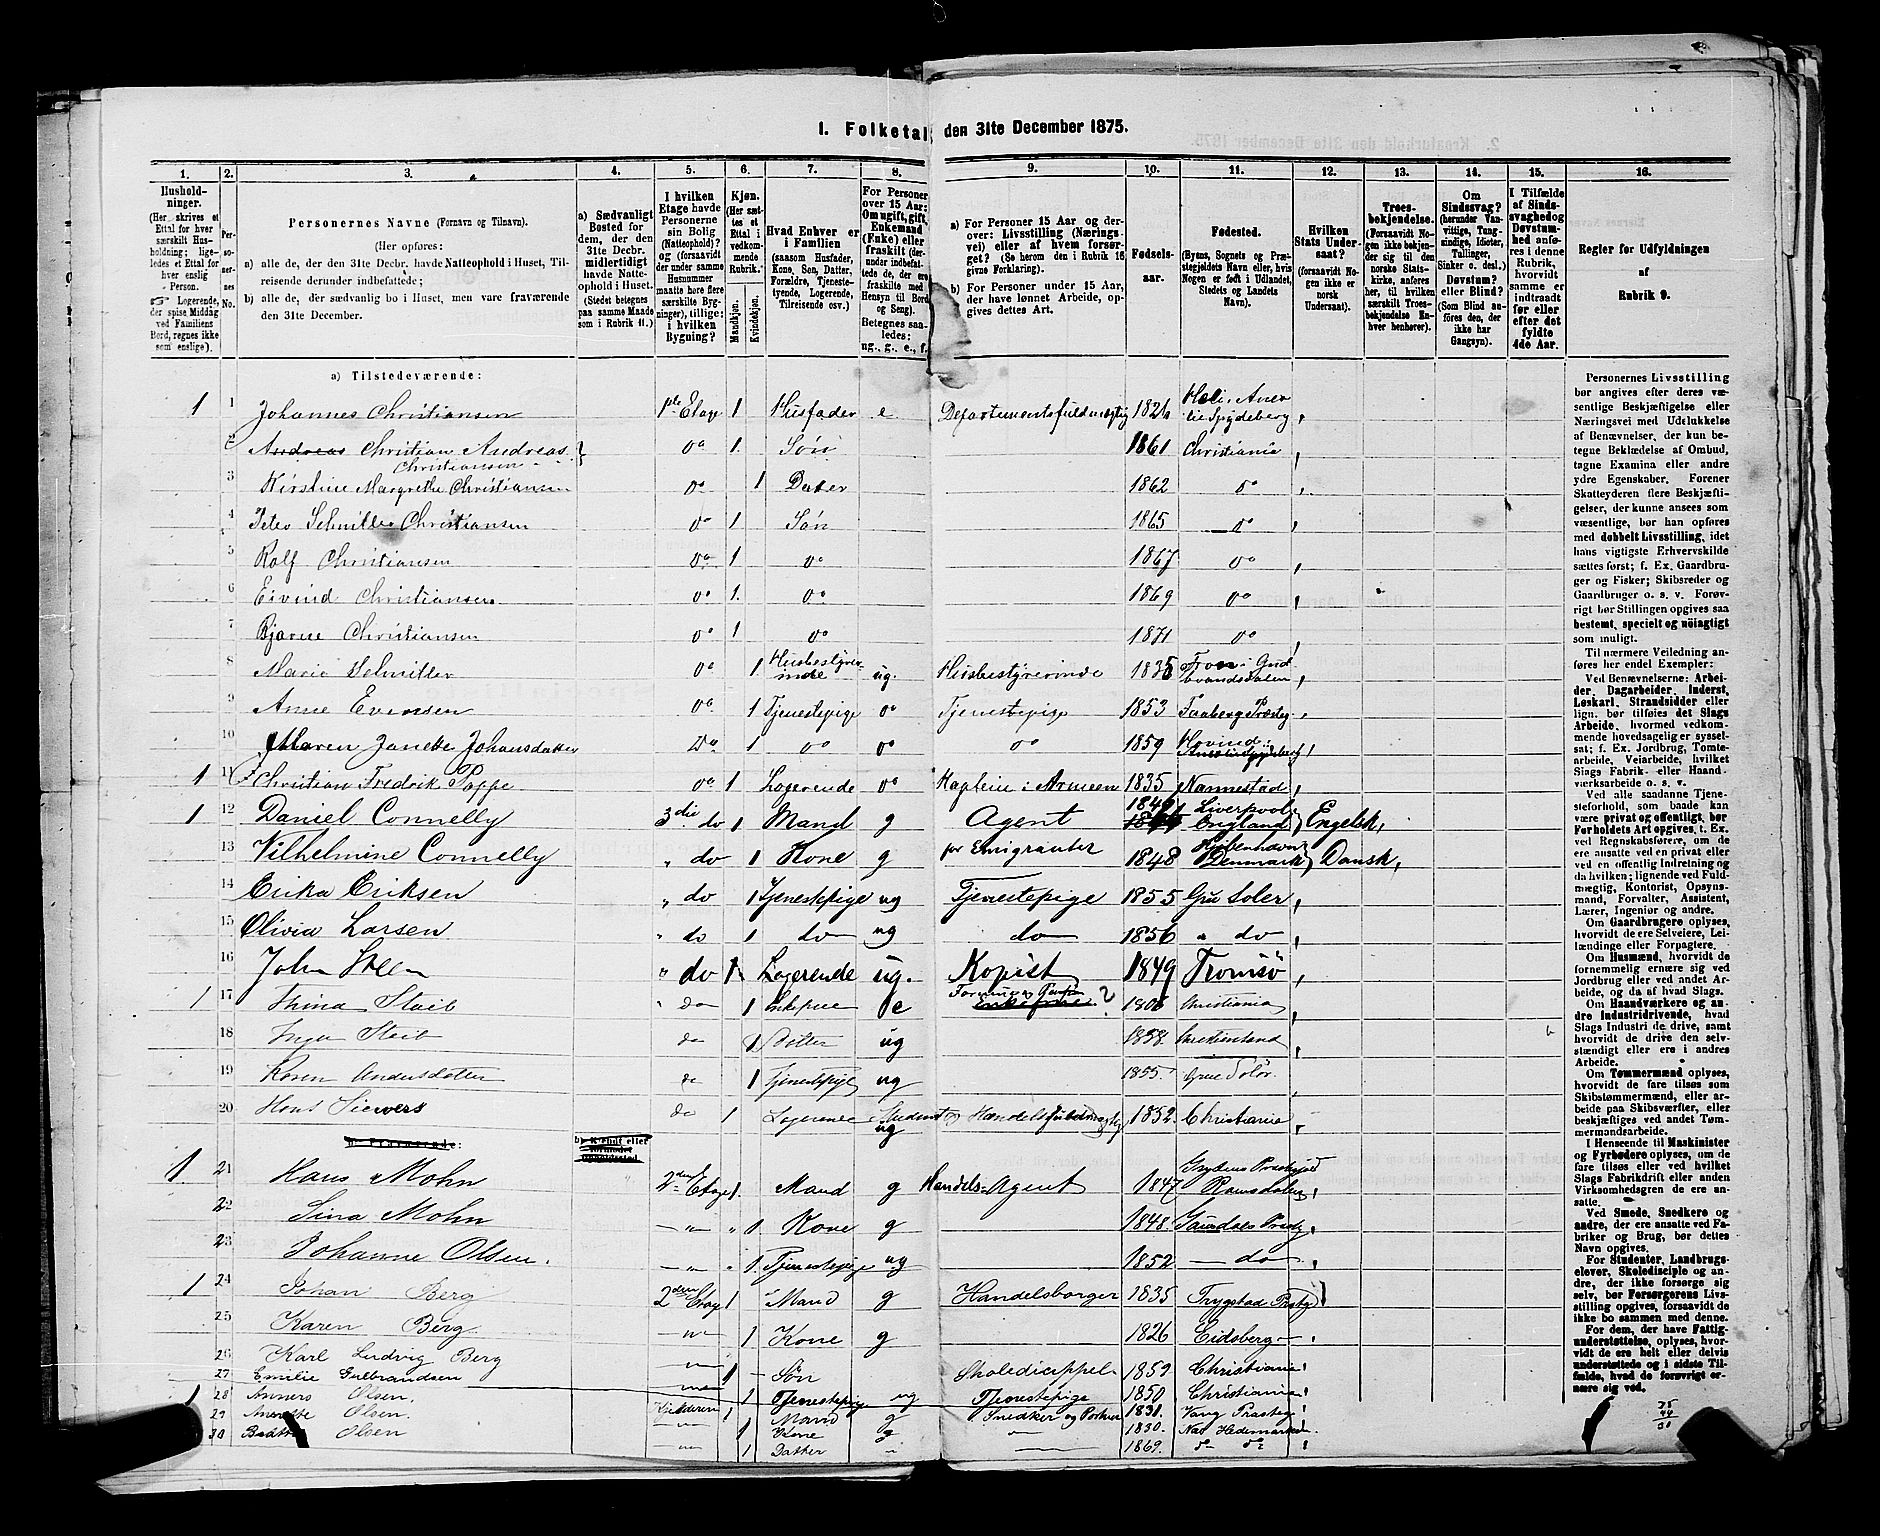 1. Folketal den 31te December 1875.
1. 2. 3. 4. 5. 6. 7. 8. 9. 10. 11. 12. 13. 14. 15. 16.
Husholdninger. (Her skrives et Ettal for hver særskilt Husholdning; ligeledes et Ettal for hver enslig Person. Logerende, der spise Middag ved Familiens Bord, regnes ikke som enslige).
Personernes No.
Personernes Navne (Fornavn og Tilnavn).
(Her opføres:
a) alle de, der den 31te Decbr. havde Natteophold i Huset, Tilreisende derunder indbefattede;
b) alle de, der sædvanlig bo i Huset, men vare fraværende den 31te December.
a) Sædvanligt Bosted for dem, der den 31te Decbr. midlertidigt havde Natteophold i Huset. (Stedet betegnes paa samme Maade som i Rubrik 11.)
I hvilken Etage havde Personerne sin Bolig (Natteophold)? og (forsaavidt der under samme Husnummer maatte høre flere særskilte Bygninger), tillige: i hvilken Bygning?
Kjøn. (Her sættes et Ettal i vedkommende Rubrik.) Mandkjøn. Kvindekjøn.
Hvad Enhver er i Familien (saasom Husfader, Kone, Søn, Datter, Forældre, Tjenestetyende, Logerende, Tilreisende osv.)
For Personer over 15 Aar: Om ugift, gift, Enkemand (Enke) eller fraskilt (derunder indbefattede de, der ere fraskilte med Hensyn til Bord og Seng). Betegnes saaledes: ug., g., e., f.
a) For Personer 15 Aar og derover: Livsstilling (Næringsvei) eller af hvem forsørget? (Se herom den i Rubrik 16 givne Forklaring).
b) For Personer under 15 Aar, der have lønnet Arbeide, opgives dettes Art.
Fødselsaar.
Fødested. (Byens, Sognets og Præstegjeldets Navn eller, hvis Nogen er født i Udlandet, Stedets og Landets Navn).
Hvilken Stats Undersaat? (forsaavidt Nogen ikke er norsk Undersaat).
Troesbekjendelse. (Forsaavidt Nogen ikke bekjender sig til den norske Statskirke, anføres her, til hvilken særskilt Troesbekjendelse Enhver henhører).
Om Sindssvag? (herunder Vanvittige, Tungsindige, Idioter, Tullinger, Sinker o. desl.) Døvstum? eller Blind? (Som Blind anføres den, der ikke har Gangsyn).
I Tilfælde af Sindssvaghed og Døvstumhed anføres i denne Rubrik, hvorvidt samme er indtraadt før eller efter det fyldte 4de Aar.
Regler for Udfyldningen af Rubrik 9.
a) Tilstedeværende:
1 1 Johannes Christiansen 1ste Etage 1 Husfader e Departementsfuldmægtig 1826 Spydeberg
2 Andreas Christian Andreas Christiansen do 1 Søn 1861 Christiania
3 Kirstine Margrethe Christiansen do 1 Datter 1862 do
4 Peter Schmitler Christiansen do 1 Søn 1865 do
5 Rolf Christiansen do 1 do 1867 do
6 Eivind Christiansen do 1 do 1869 do
7 Bjarne Christiansen do 1 do 1871 do
8 Marie Schmitler do 1 Husbestyrerinde ug. Husbestyrerinde 1835 Fron i Gudbrandsdalen
9 Anne Evensen do 1 Tjenestepige do Tjenestepige 1853 Faabergs Præsteg.
10 Maren Janette Johansdatter Do 1 do do do 1859 Hovind
1 11 Christian Fredrik Poppe do 1 Logerende do Kaptein i Armeen 1835 Nannestad
1 12 Daniel Connelly 3die do 1 Mand g Agent 1846 Liverpool England Engelsk,
13 Vilhelmine Connelly " do 1 Kone g for Emigranter 1848 Kjøbenhavn Denmark Dansk,
14 Erika Eriksen " do 1 Tjenestepige ug Tjenestepige 1855 Gru Soler
15 Olivia Larsen " do 1 do ug do 1856 " do
16 John Steen " do 1 Logerende ug. Kopist 1849 Tromsø
1 17 Thina Staib " do 1 e ? Christiania
18 Inga Staib do 1 Dotter ug 1858 Christiansand
19 Karen Andersdotter do 1 Tjenestepige ug 1855 Grue Solør
20 Hans Siewers do 1 Logerene ug Student og Handelsfuldmægtig 1852 Christiania
b) Fraværende:
b) Kjendt eller formodet Opholdssted.
1 21 Hans Mohn 2den Etage 1. Mand g Handels-Agent 1847 Grytens Præstegjeld Romsdalen
22 Sina Mohn " 1 Kone g 1848 Præstg.
23 Johanne Olsen. " 1. Tjenestepige ug 1852 do
1 24 Johan Berg 2den Etage 1 Mand g Handelsborger 1835 Trygstad Præstg
25 Karen Berg. 1 Kone g 1826 Eidsberg
26 Karl Ludvig Berg 1 Søn Skoledicippel 1859 Christiania
27 Emilie Gulbrandsen 1 Tjenestepige ug Tjenestepige 1850 Christiania
1 28 Anners Olsen. Kjelderen 1 Mand g Snedker og 1831. Vang Præsteg
29 Annette Olsen. 1 Kone g 1830. Næs Hedemarken
30 Olsen 1 Datter 1869. do do
Personernes Livsstilling bør angives efter deres væsentlige Beskjæftigelse eller Næringsvei med Udelukkelse af Benævnelser, der kun betegne Beklædelse af Ombud, tagne Examina eller andre ydre Egenskaber. Forener Skatteyderen flere Beskjæftigelser, der kunne ansees som væsentlige, bør han opføres med dobbelt Livsstilling, idet hans vigtigste Erhvervskilde sættes først; f. Ex. Gaardbruger og Fisker; Skibsreder og Gaardbruger o. s. v. Forøvrigt bør Stillingen opgives saa bestemt, specielt og nøiagtigt som muligt.
Til nærmere Veiledning anføres her endel Exempler:
Ved Benævnelserne: Arbeider, Dagarbeider, Inderst, Løskarl, Strandsidder eller lign. bør tilføies det Slags Arbeide, hvormed vedkommende hovedsagelig er sysselsat; f. Ex. Jordbrug, Tomtearbeide, Veiarbeide, hvilket Slags Fabrik- eller Haandværksarbeide o. s. v.
Ved alle saadanne Tjenesteforhold, som baade kan være privat og offentligt, bør Forholdets Art opgives, t. Ex. ved Regnskabsførere, om de ere ansatte ved en privat eller ved en offentlig Indretning og da hvilken; lignende ved Fuldmægtig, Kontorist, Opsynsmand, Forvalter, Assistent, Lærer, Ingeniør og andre.
Om Gaardbrugere oplyses, hvorvidt de ere Selveiere, Leilændinge eller Forpagtere.
Om Husmænd, hvorvidt de fornemmelig ernære sig ved Jordbrug eller ved andet Arbeide, og da af hvad Slags.
Om Haandværkere og andre Industridrivende, hvad Slags Industri de drive, samt hvorvidt de drive den selvstændigt eller ere i andres Arbeide.
Om Tømmermænd oplyses, hvorvidt de fare tilsøs som Skibstømmermænd, eller arbeide paa Skibsværfter, eller beskjæftiges ved andet Tømmermandsarbeide.
I Henseende til Maskinister og Fyrbødere oplyses, om de fare tilsøs eller ved hvilket Slags Fabrikdrift eller anden Virksomhedsgren de ere ansatte.
Ved Smede, Snedkere og andre, der ere ansatte ved Fabriker og Brug, bør dettes Navn opgives.
For Studenter, Landbrugselever, Skoledisciple og andre, der ikke forsørge sig selv, bør Forsørgerens Livsstilling opgives, forsaavidt de ikke bo sammen med denne.
For dem, der have Fattigunderstøttelse, oplyses, hvorvidt de ere helt eller delvis understøttede og i sidste Tilfælde, hvad de forøvrigt ernære sig ved.